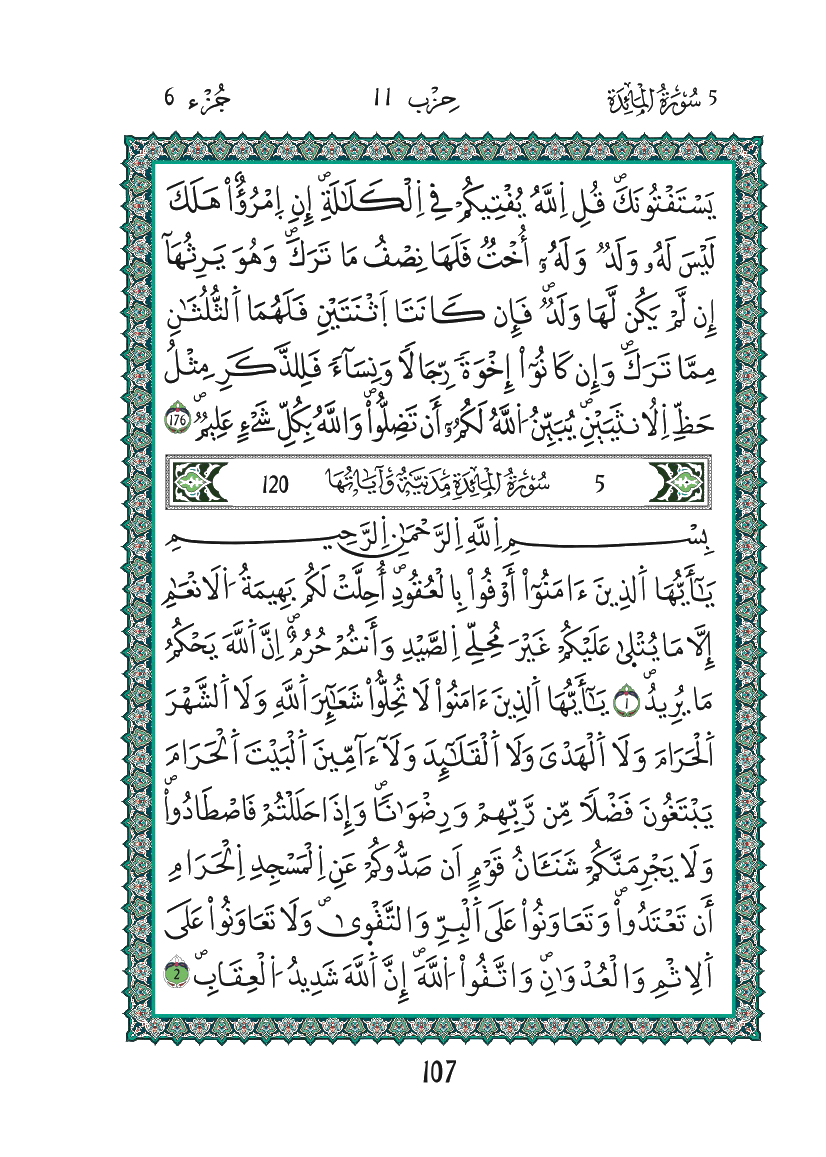 5 سُورَةُ الْمَائِدَةِ حِزْب 11 جُزْء 6
يَسْتَفْتُونَكَۖ قُلِ اِ۬للَّهُ يُفْتِيكُمْ فِے اِ۬لْكَلَٰلَةِۖ إِنِ اِ۪مْرُؤٌاْ هَلَكَ
لَيْسَ لَهُۥ وَلَدٞ وَلَهُۥٓ أُخْتٞ فَلَهَا نِصْفُ مَا تَرَكَۖ وَهُوَ يَرِثُهَآ
إِن لَّمْ يَكُن لَّهَا وَلَدٞۖ فَإِن كَانَتَا اَ۪ثْنَتَيْنِ فَلَهُمَا اَ۬لثُّلُثَٰنِ
مِمَّا تَرَكَۖ وَإِن كَانُوٓاْ إِخْوَةٗ رِّجَالٗا وَنِسَآءٗ فَلِلذَّكَرِ مِثْلُ
حَظِّ اِ۬لُانثَيَيْنِۖ يُبَيِّنُ اُ۬للَّهُ لَكُمُۥٓ أَن تَضِلُّواْۖ وَاللَّهُ بِكُلِّ شَےْءٍ عَلِيمٞۖ 176
5 سُورَةُ الْمَائِدَةِ مَدَنِيَّةٌ وَآيَاتُهَا 120
بِسْمِ اِ۬للَّهِ اِ۬لرَّحْمَٰنِ اِ۬لرَّحِيمِ
يَٰٓأَيُّهَا اَ۬لذِينَ ءَامَنُوٓاْ أَوْفُواْ بِالْعُقُودِۖ أُحِلَّتْ لَكُم بَهِيمَةُ اُ۬لَانْعَٰمِ
إِلَّا مَا يُتْل۪يٰ عَلَيْكُمْ غَيْرَ مُحِلِّے اِ۬لصَّيْدِ وَأَنتُمْ حُرُمٌۖ اِنَّ اَ۬للَّهَ يَحْكُمُ
مَا يُرِيدُۖ 1 يَٰٓأَيُّهَا اَ۬لذِينَ ءَامَنُواْ لَا تُحِلُّواْ شَعَٰٓئِرَ اَ۬للَّهِ وَلَا اَ۬لشَّهْرَ
اَ۬لْحَرَامَ وَلَا اَ۬لْهَدْيَ وَلَا اَ۬لْقَلَٰٓئِدَ وَلَآ ءَآمِّينَ اَ۬لْبَيْتَ اَ۬لْحَرَامَ
يَبْتَغُونَ فَضْلٗا مِّن رَّبِّهِمْ وَرِضْوَٰناٗۖ وَإِذَا حَلَلْتُمْ فَاصْطَادُواْۖ
وَلَا يَجْرِمَنَّكُمْ شَنَـَٔانُ قَوْمٍ اَن صَدُّوكُمْ عَنِ اِ۬لْمَسْجِدِ اِ۬لْحَرَامِ
أَن تَعْتَدُواْۖ وَتَعَاوَنُواْ عَلَي اَ۬لْبِرِّ وَالتَّقْو۪يٰۖ وَلَا تَعَاوَنُواْ عَلَي
اَ۬لِاثْمِ وَالْعُدْوَٰنِۖ وَاتَّقُواْ اُ۬للَّهَۖ إِنَّ اَ۬للَّهَ شَدِيدُ اُ۬لْعِقَابِۖ 2
107